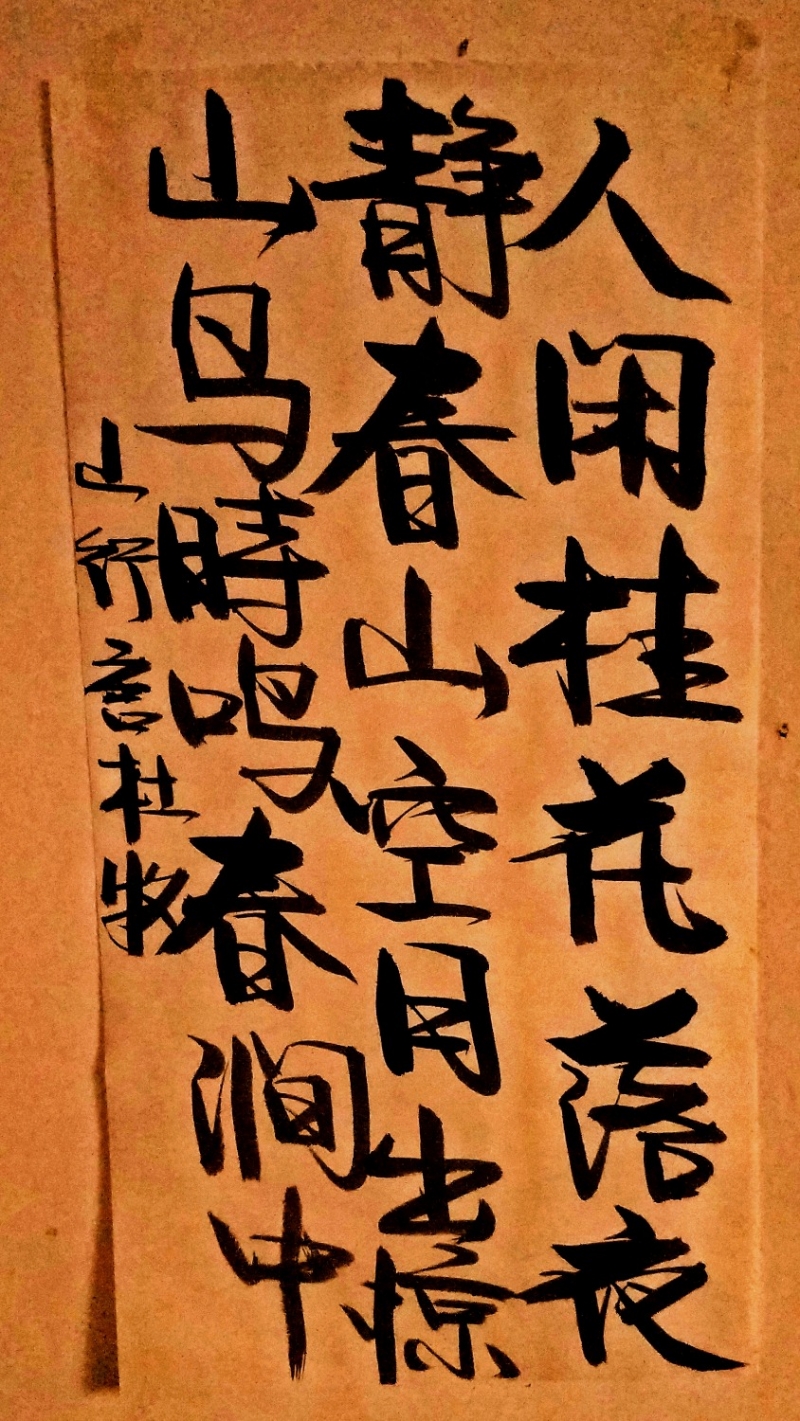 人闲桂花落夜
静春山空月出惊
山鸟時鸣春涧中
山行言杜牧